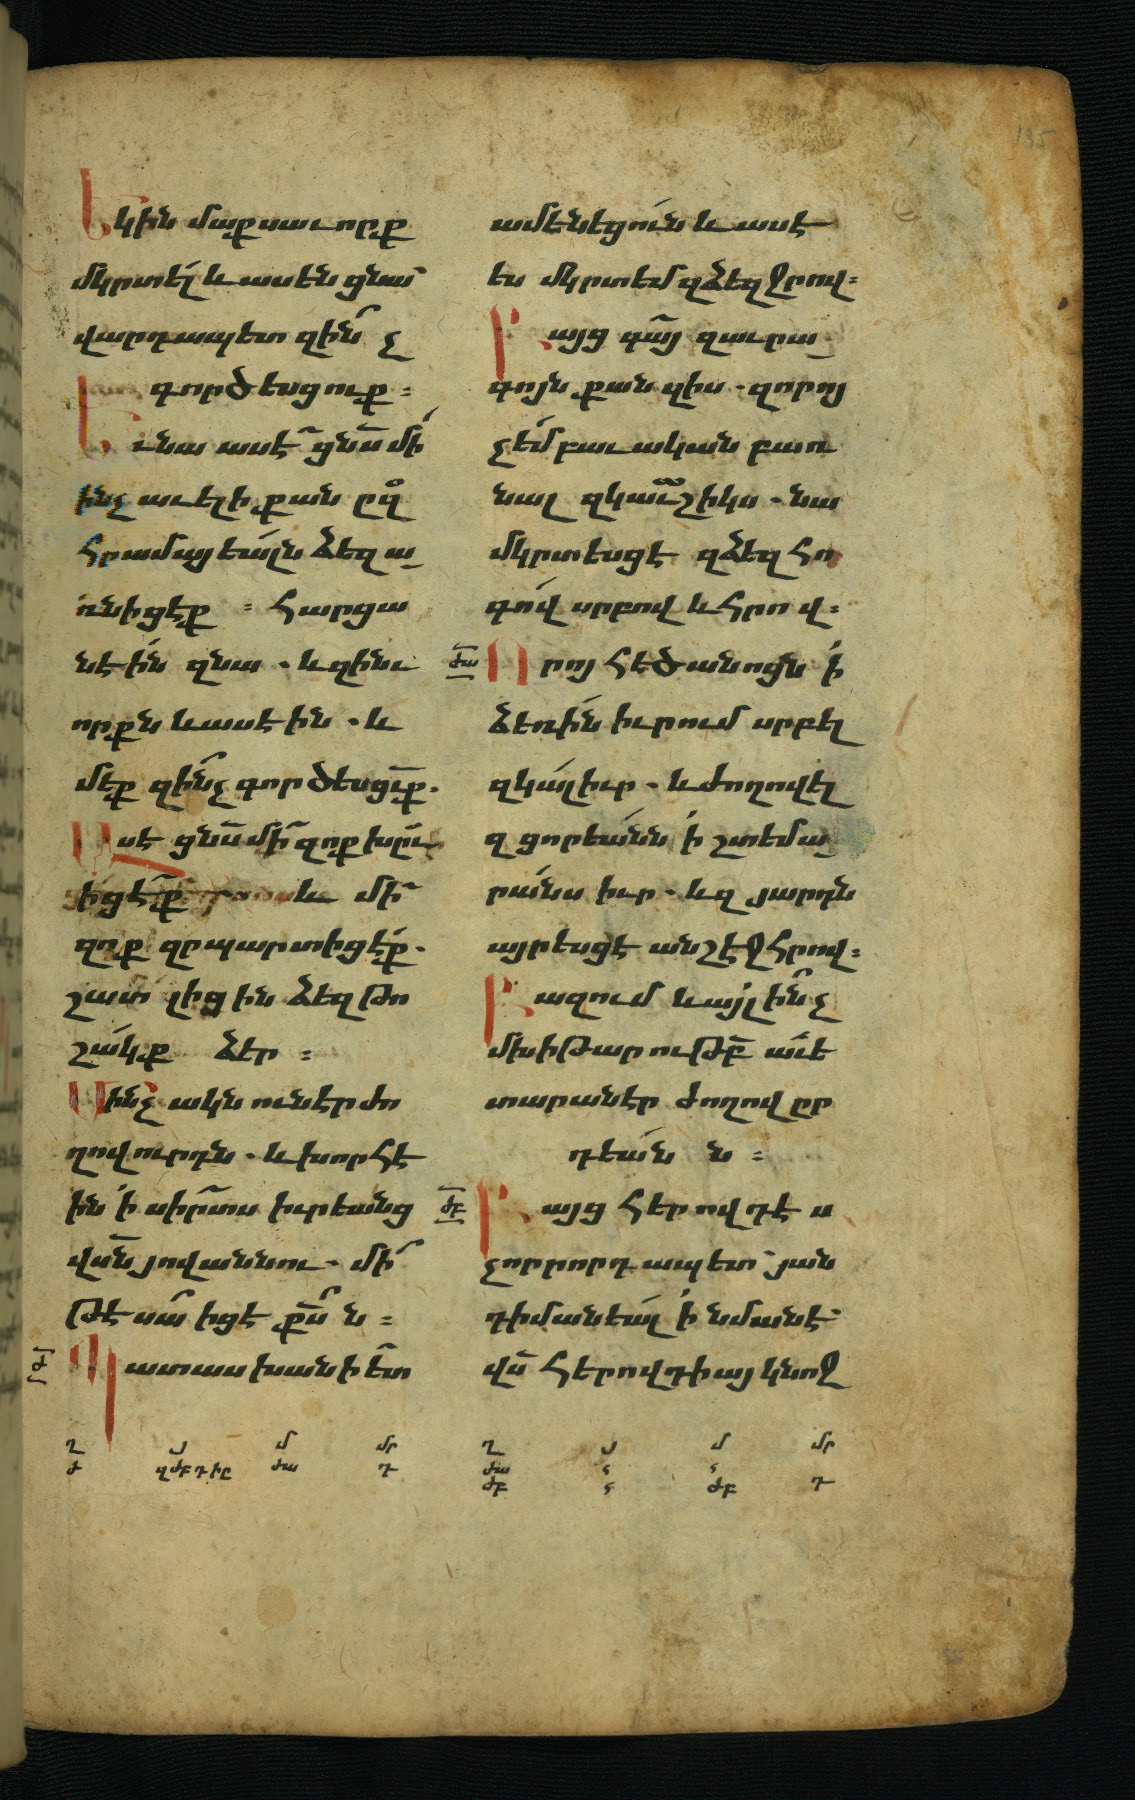 195
Եկին մաքսաւորք
մկրտել և ասեն ցնա՜
վարդապետ զին՜չ
գործեսցուք :
Եւ նա ասէ՜ ցնս՜ մի՜
ինչ աւելի քան ըզ
հրամայեալն ձեզ ա
ռնիցէք : հարցա
նէին զնա . և զինւ
որքն և ասէին . և
մեք զի՜նչ գործեսցք՜ .
Ասէ ցնս՜ մի՜ զոք խըւ
իցէ՜ք և մի՜
զոք զըպարտիցէք .
շատ լիցին ձեզ թո
շակք ձեր :
Մինչ ակն ունէր ժո
ղովուրդն . և խորհէ
ին ի սիրտս իւրեանց
վսն՜ յովաննու . մի՜
թէ սա՜ իցէ քս՜ն :
ժ
Պատասխանի ետ
ամենեցուն և ասէ
ես մկրտեմ զձեզ ջրով :
Բայց գայ զաւրա
գոյն քան զիս . զորոյ
չեմ բաւական բառ
նալ զկաւշիկս . նա
մկրտեսցէ զձեզ հո
գով սրբով և հրով :
ժա
Որոյ հեծանոցն ի
ձեռին իւրում սրբել
զկալիւր . և ժողովել
զցորեանն ի շտեմա
րանս իւր . և զյարդն
այրեսցէ անշէջ հրով :
Բազում և այլ ին՜չ
մխիթարութբ՜ աւե
տարանէր ժողովըր
դեան ն :
ժբ
Բայց հերովդէս
չորրորդապետ յան
դիմանեալ ի նմանէ
վս՜ հերովդիայ կնոջ
ղ յ մ մր
ժ զժբդիը ժա դ
ղ յ մ մր
ժա
ժբ ժբ դ